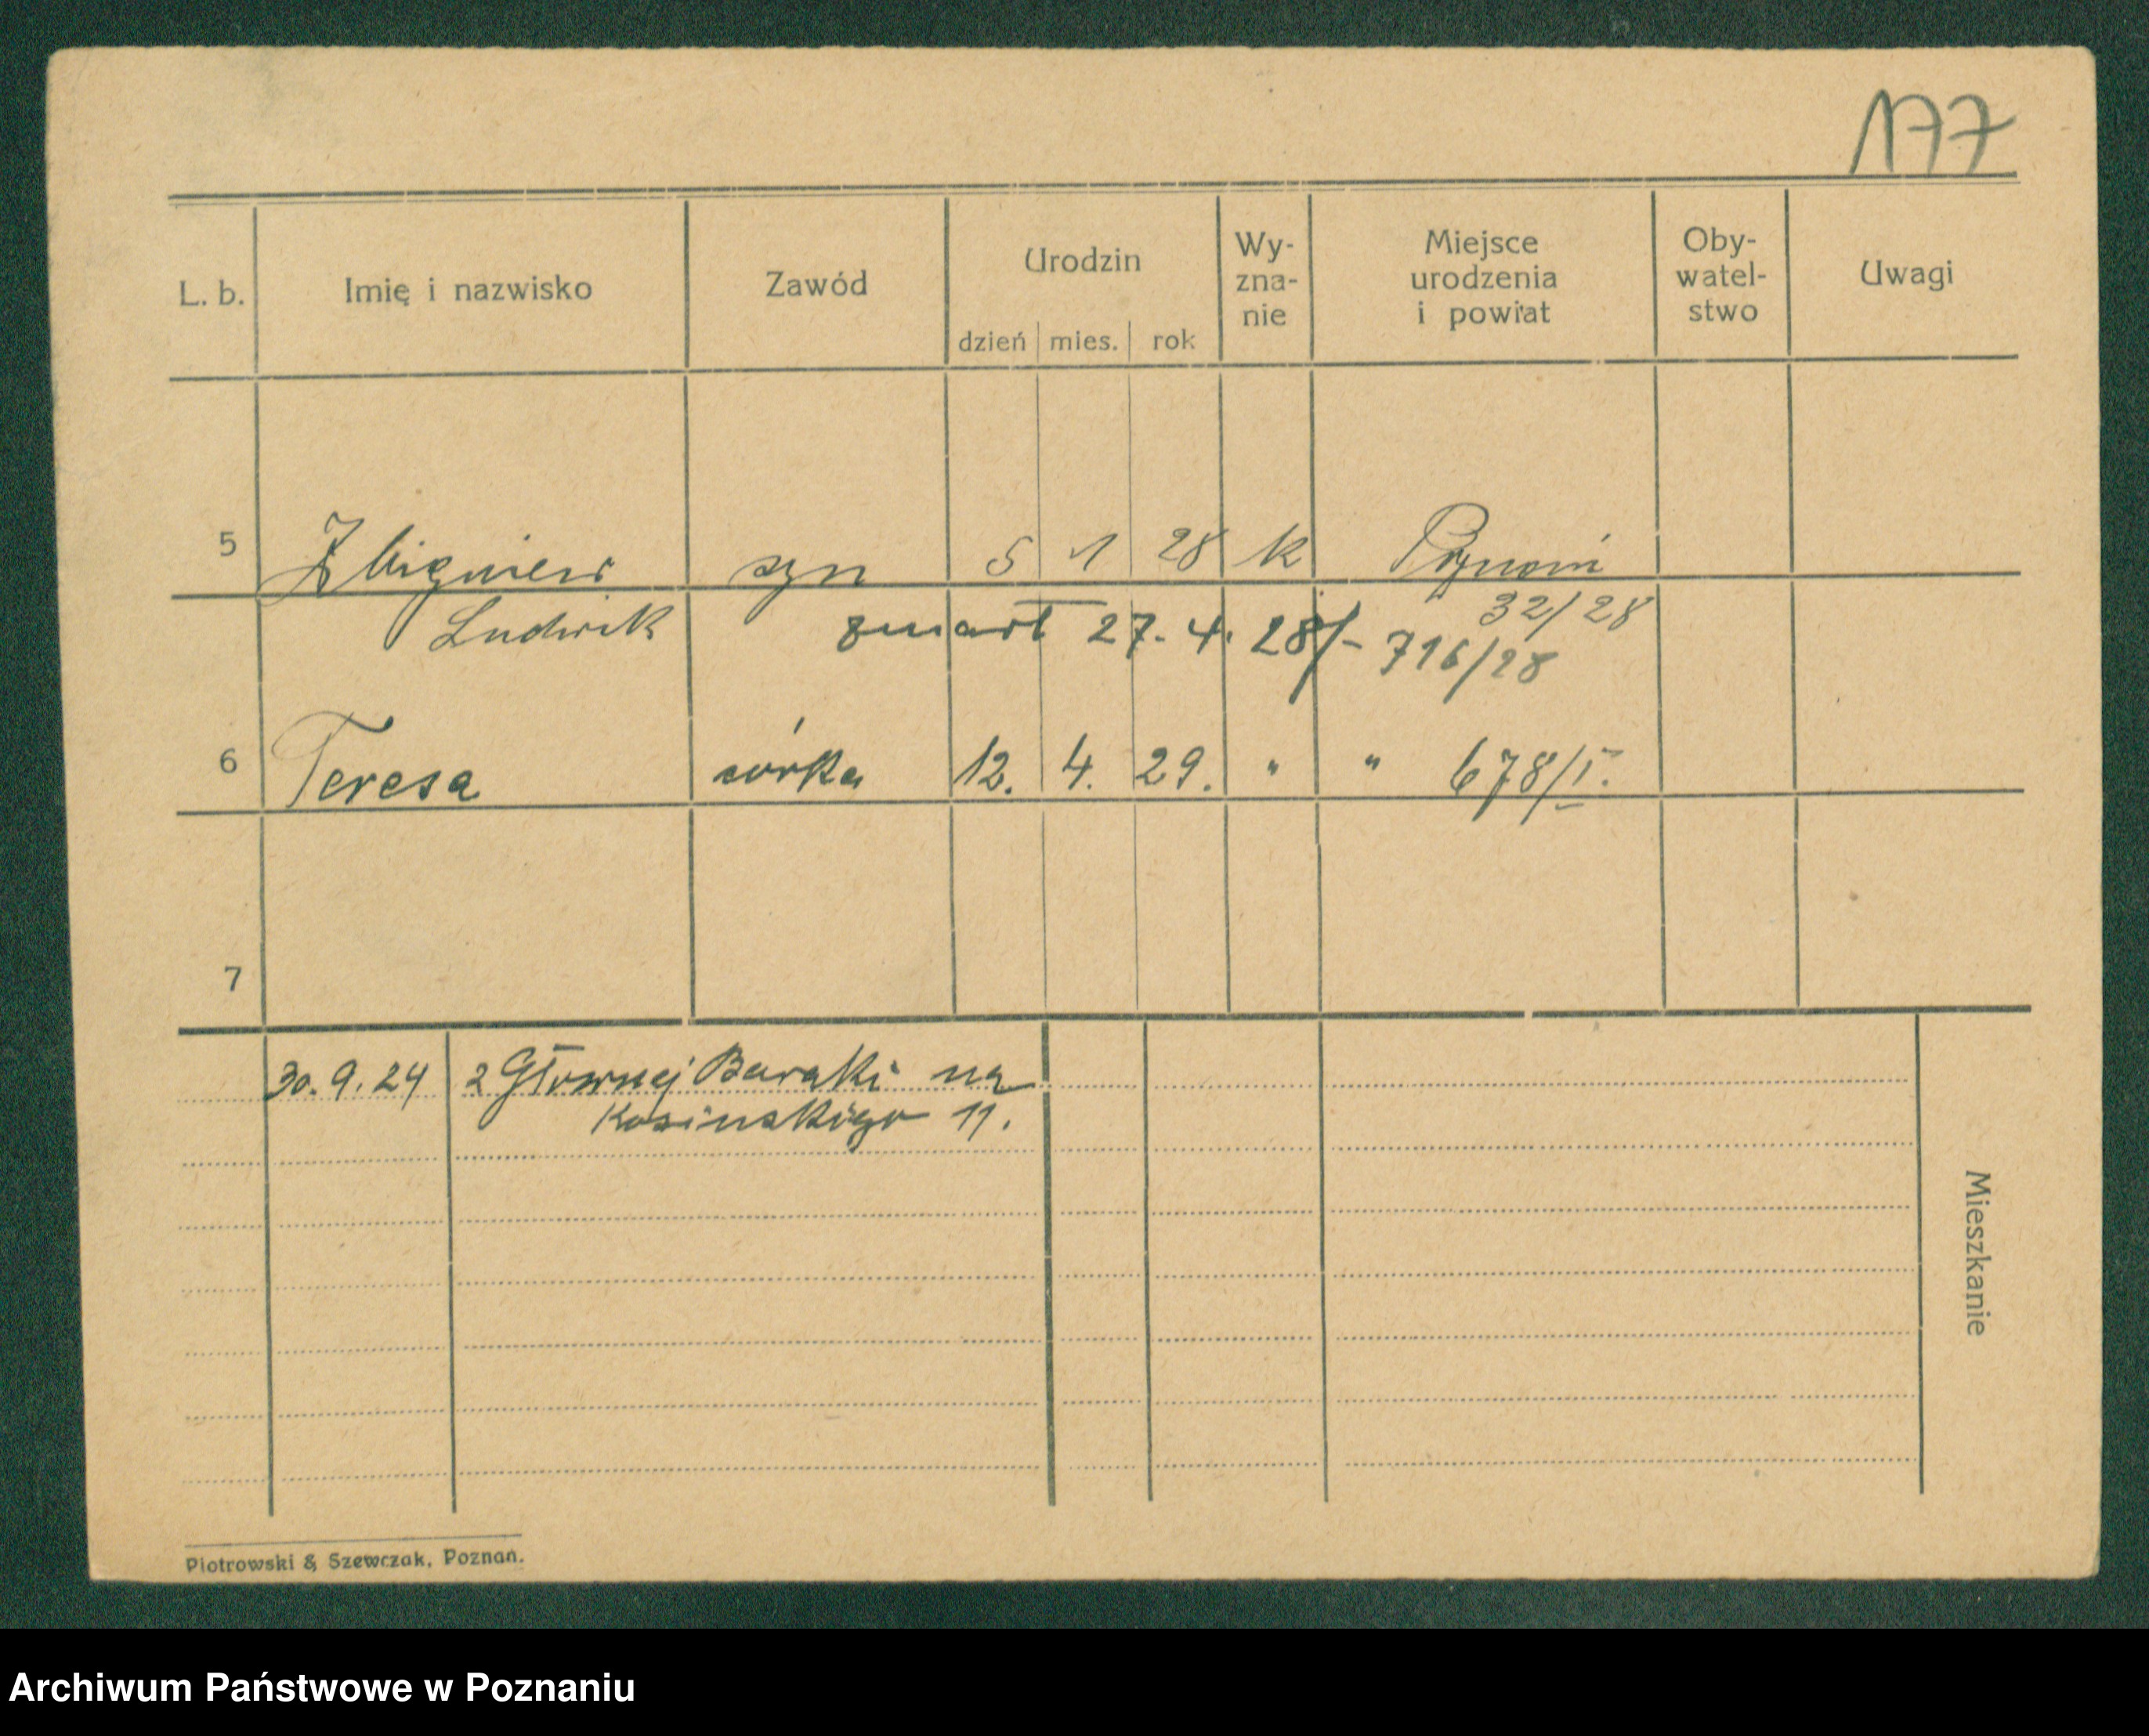 177
L. b.
Imię i nazwisko
Zawód
Urodzin
dzień mies. rok
Wy-
zna-
nie
Miejsce
urodzenia
i powiat
Oby-
watel-
stwo
Uwagi
5 Zbigniew syn 5 1 28 k Poznań
32/28
Ludwik zmarł 27. 4. 28/- 716/28
6 Teresa córka 12. 4. 29. " " 678/I.
7
30. 9. 24 z Głównej Baraki na
Kosinskiego 11.
Mieszkanie
Piotrowski & Szewczak, Poznań.
Archiwum Państwowe w Poznaniu